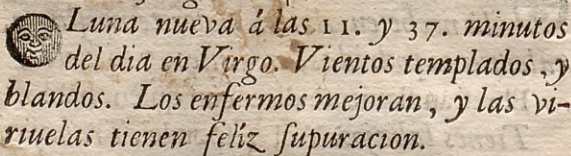 Luna nueva á las 11. y 37. minutos
del dia en Virgo. Vientos templados, y
blandos. Los enfermos mejoran, y las vi-
riuelas tienen felíz ſupuracion.